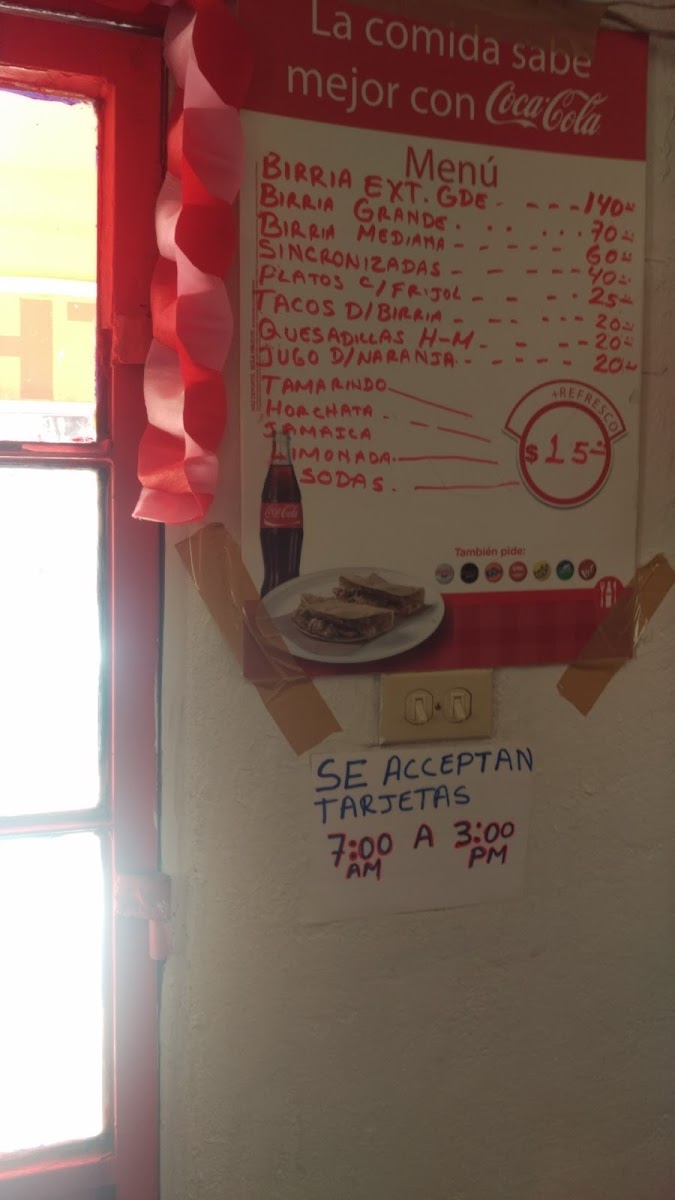 La comida sabe
mejor con Coca-Cola
Menú
BIRRIA EXT. GDE. - - - - 140
BIRRIA GRANDE. . . . . . 70
BIRRIA MEDIANA - - - - - 60
SINCRONIZADAS - - - - - 40
PLATOS C/FRIJOL - - - - 25
TACOS D/BIRRIA - - - - - 20
QUESADILLAS H-M - - - - 20
JUGO D/NARANJA - - - - - 20
TAMARINDO
HORCHATA
JAMAICA
LIMONADA
SODAS.
+REFRESCO
$15
Coca-Cola
También pide:
SE ACCEPTAN
TARJETAS
7:00 A 3:00
AM PM